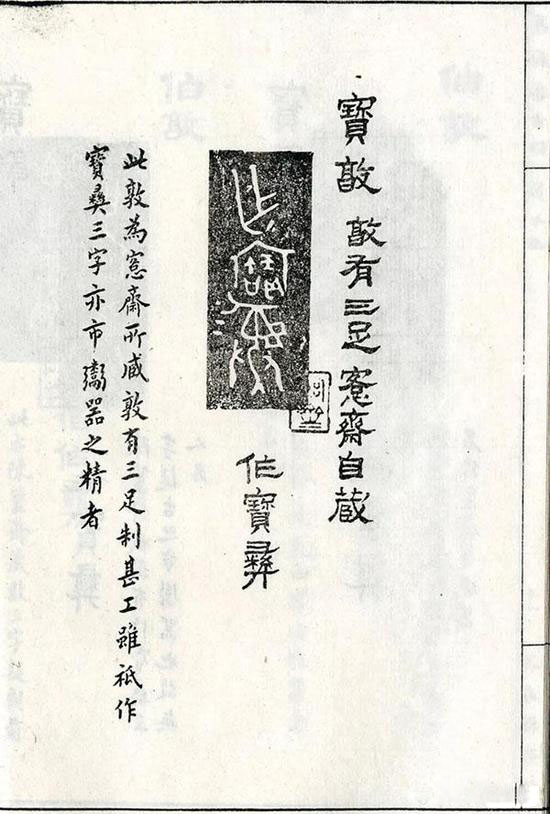 寶敦 敦有三足 愙齋自藏
乍寶彝
作寶彝
此敦為愙齋所臧敦有三足制甚工雖祇作
寶彝三字亦市鬻器之精者